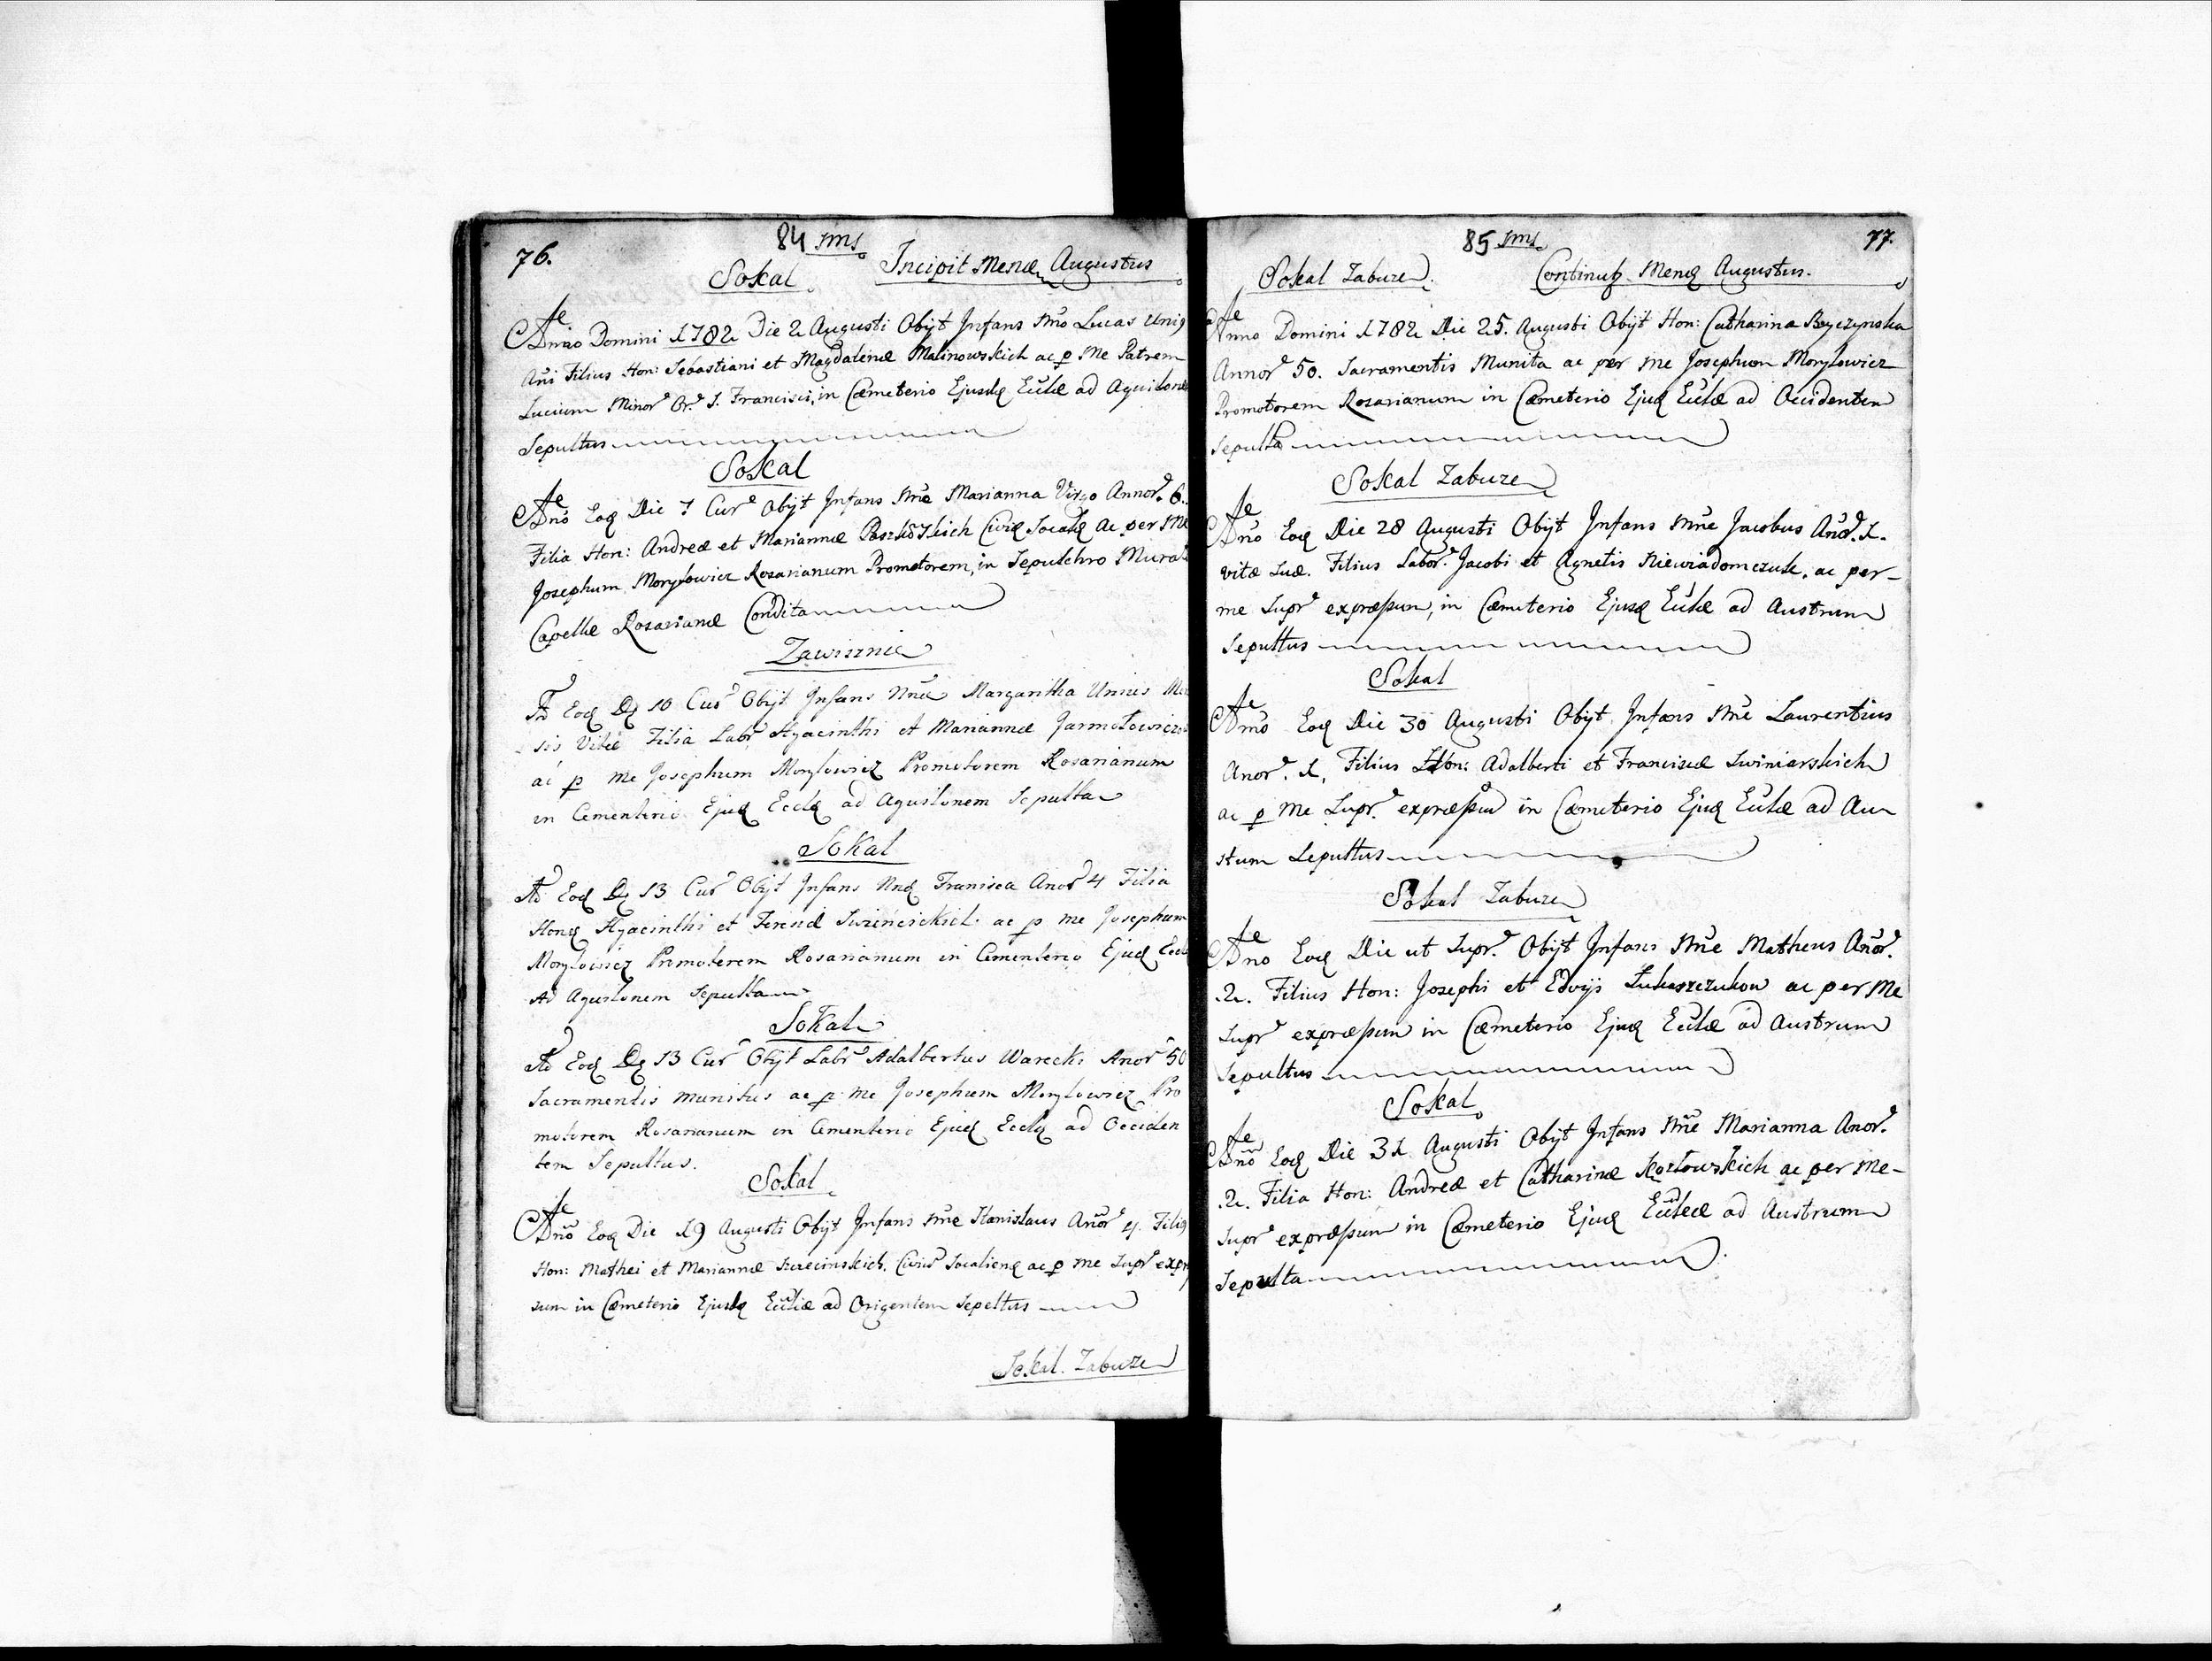 76.
84 sms
Sokal Incipit Mensis Augustus
Anno Domini 1782 Die 2 Augusti Obijt Infans Nno Lucas Unig
Ani Filius Hon: Sebastiani et Magdalenæ Malinowskich ac p Me Patrem
Lucium Minor Or. S. Francisci, in Cæmeterio Ejusdq Eccłæ ad Aquilone
Sepultus
Sokal
Ano Eoq Die 7 Cur Obijt Infans Nne Marianna Virgo Annor. 6.
Filia Hon: Andreæ et Mariannæ Civiq Socalq ac per Me
Josephum Moryłowicz Rosarianum Promotorem, in Sepulchro Mura
Capellæ Rosarianæ Condita
Zawisznie
Ao Eoq Dq 10 Cur Obijt Infans Nne Margaritha Unius Me
sis Vitæ Filia Labr Hyacinthi et Mariannæ Jarmołowicz
ac p me Josephum Moryłowicz Promotorem Rosarianum
in Cementerio Ejuq Ecclq ad Aguilonem Sepulta
Sokal
Ao Eoq Dq 13 Cur Obijt Infans Nnq Francisca Anor 4 Filia
Honq Hyacinthi et ac p me Josephum
Moryłowicz Promoterem Rosarianum in Cementerio Ejuq Eccl
Ad Aguilonem Sepulta
Sokal
Ao Eoq Dq 13 Cur Obijt Labr Adalbertus Warecki Anor 50
Sacramentis munitus ac p me Josephum Moryłowicz Pro
motorem Rosarianum in Cementerio Ejuq Ecclq ad Occiden
tem Sepultus.
Sokal
Año Eoq Die 19 Augusti Obijt Infans Nne Stanislaus Anor 4. Filig
Hon: Mathei et Mariannæ Civiu Socalienq ac p me Supr expr
sum in Cæmeterio Ejusdq Eccliæ ad Origentem Sepeltus
Sokal Zabuze
85 sms
77.
Sokal Zabuze. Continuq Menq Augustus.
Anno Domini 1782 Die 25. Augusti Obijt Hon: Catharina Byczynska
Annor 50. Sacramentis Munita ac per me Josephum Moryłowicz
Promotorem Rosarianum in Cæmeterio Ejuq Eccłæ ad Occidentem
Sepulta
Sokal Zabuze
Año Eoq Die 28 Augusti Obijt Infans Nne Jacobus Anor. 1.
vitæ suæ. Filius Labor. Jacobi et Agnetis Niewiadomczuk, ac per-
me Supr expræssum, in Cæmeterio Ejusq Eccłæ ad Austrum
Sepultus
Sokal
Ano Eoq Die 30 Augusti Obijt Infans Nne Laurentius
Anor. 1, Filius Hon: Adalberti et Franciscæ Swiniarskich
ac p Me Supr. expræssum in Cæmeterio Ejuq Eccłæ ad Au
strum Sepultus
Sokal Zabuze
Ano Eoq Die ut Supr. Obijt Infans Nne Matheus Anor.
2. Filius Hon: Josephi et Edvijs Łukaszczukow ac per Me
Supr expræssum in Cæmeterio Ejuq Eccłæ ad Austrum
Sepultus
Sokal
Año Eoq Die 31 Augusti Obijt Infans Nne Marianna Anor.
2. Filia Hon: Andreæ et Catharinæ Kozłowskich ac per me-
Supr expræssum in Cæmeterio Ejuq Eccleæ ad Austrum
Sepulta